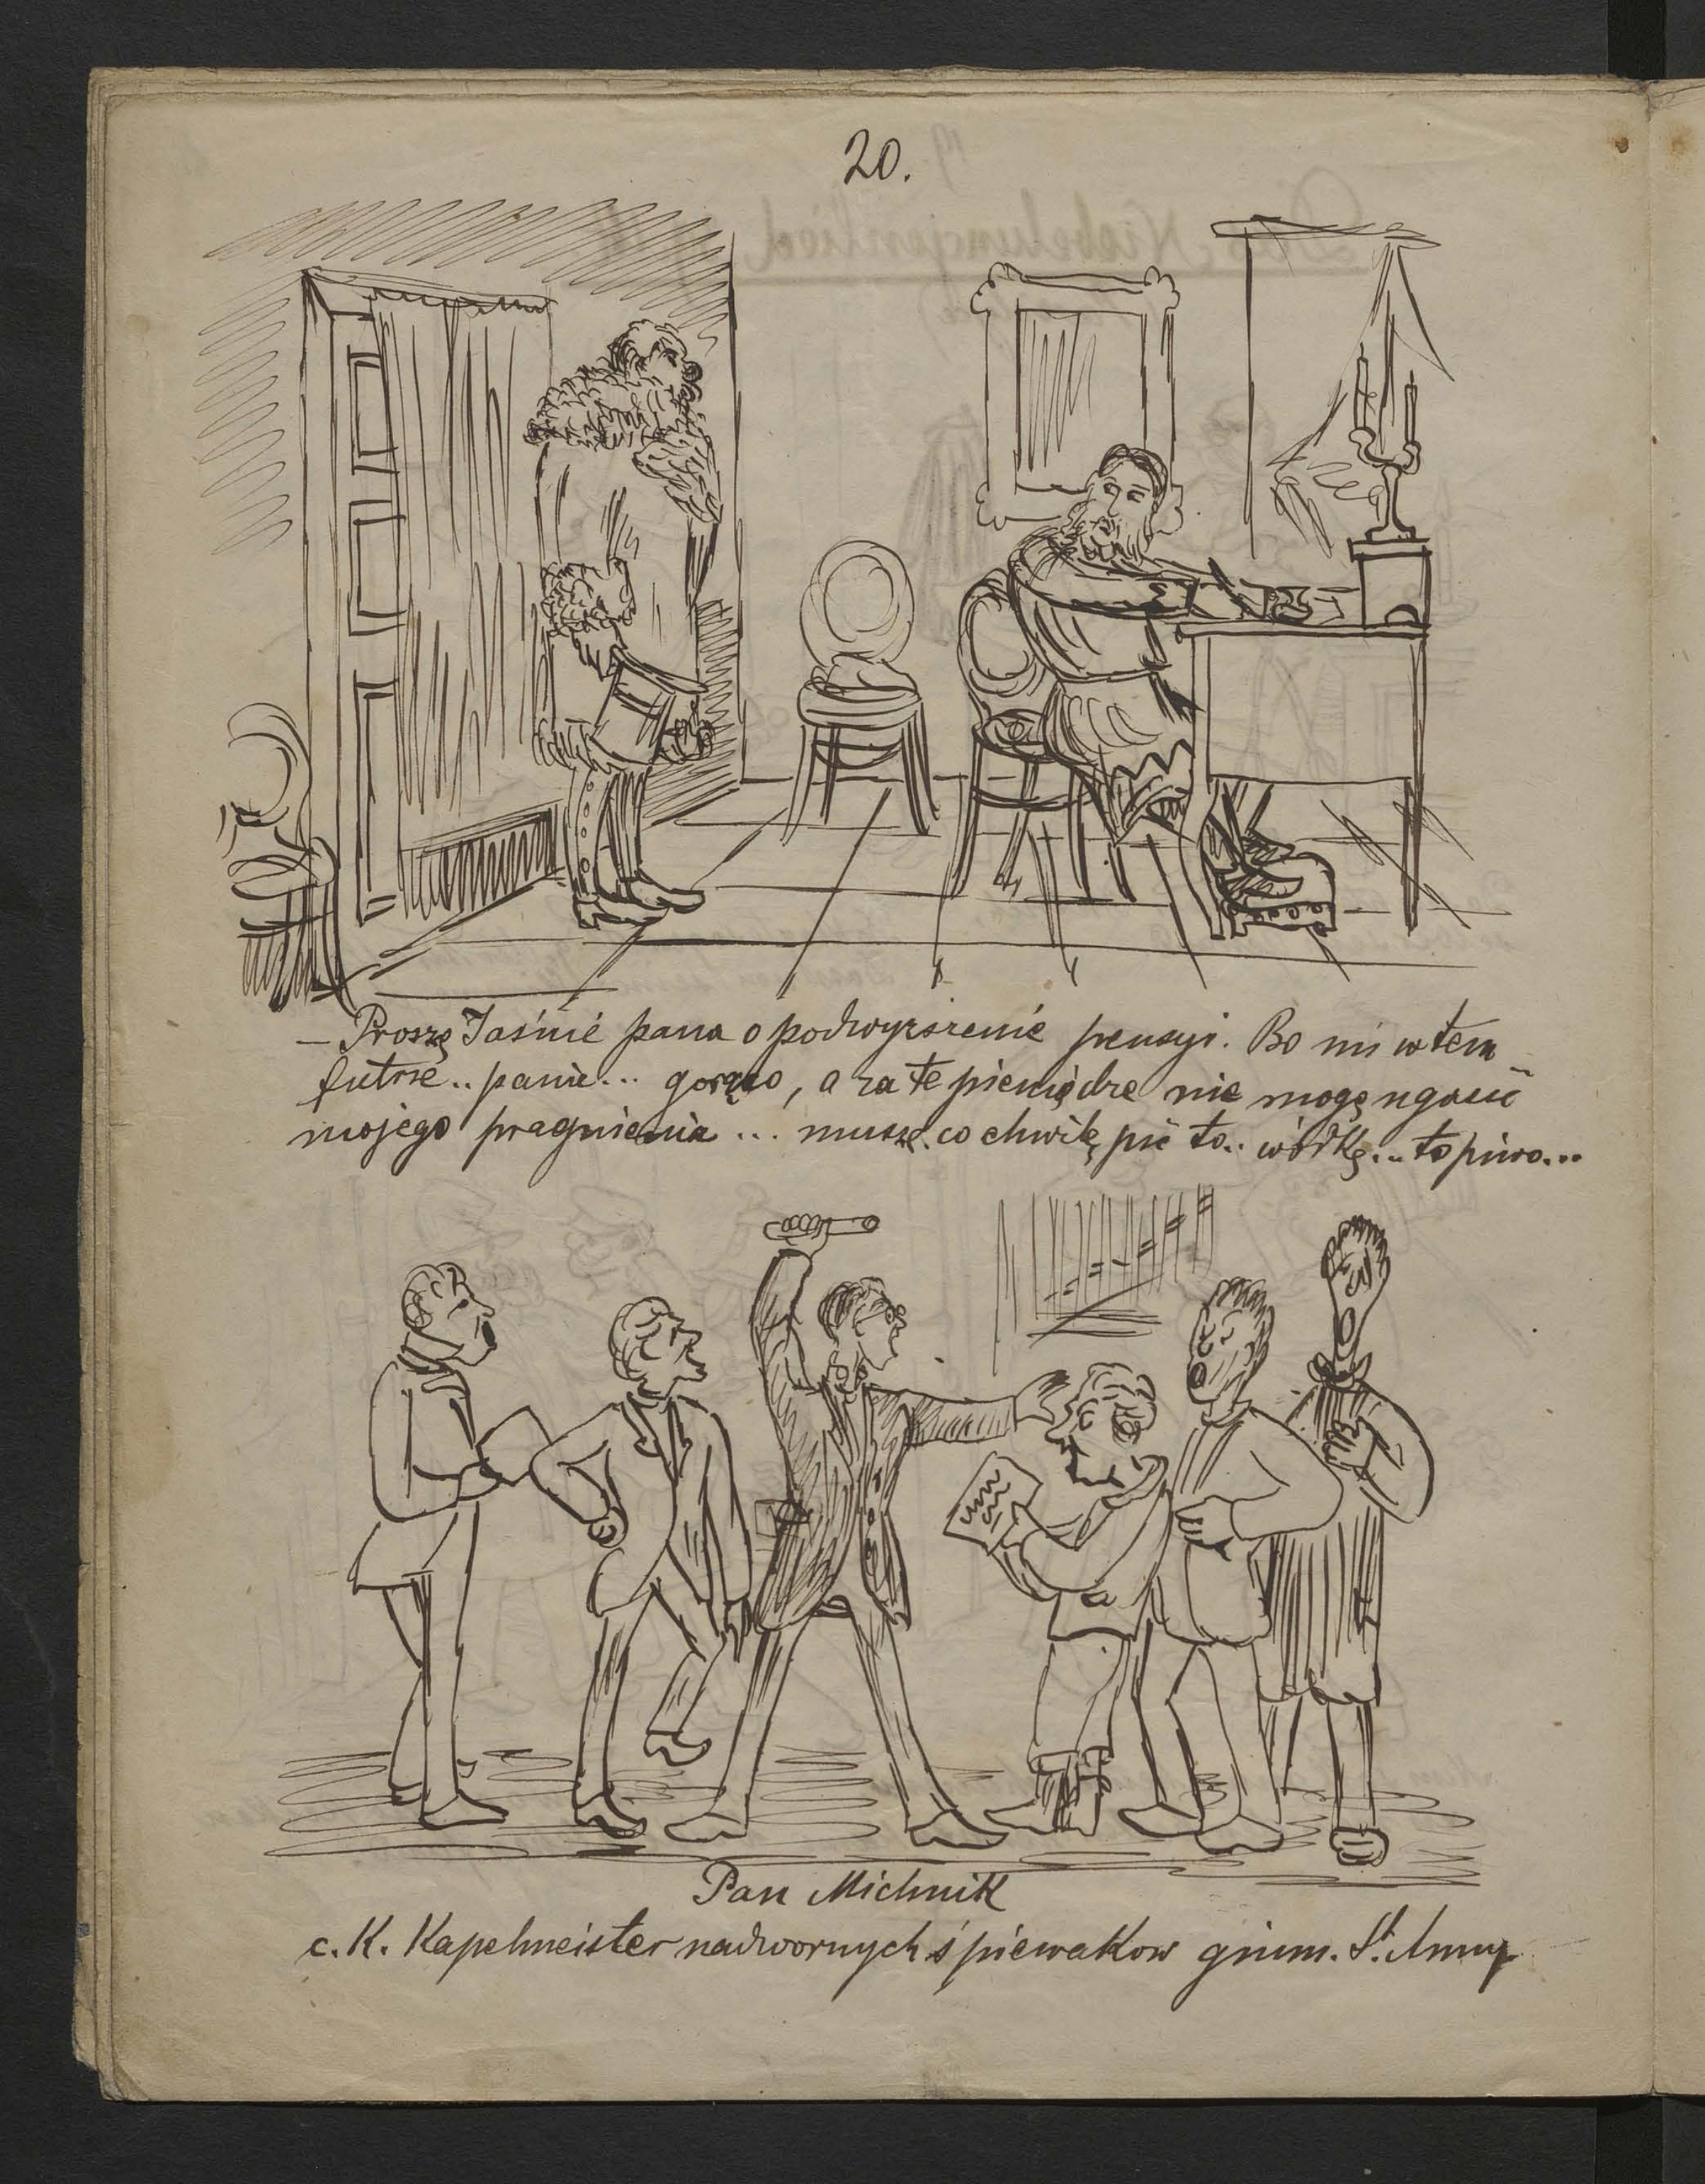 20.
— Proszę Jaśnie pana o podwyższenie pensyi. Bo mi w tem
futrze.. panie... gorąco, a za te pieniądze nie mogę ugasić
mojego pragnienia... muszę co chwilę pić to.. wódkę... to piwo...
Pan Michnik
c. K. Kapelmeister nadwornych śpiewakow gimn. St. Anny